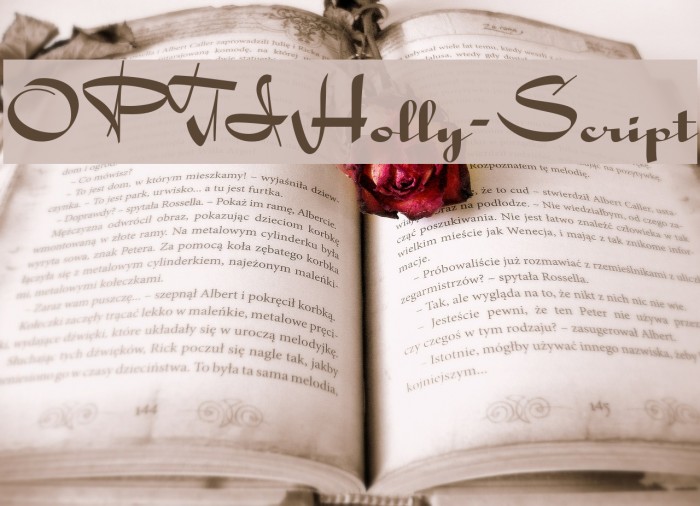 OPTIHolly-Script
i Albert Caller zaprowadzili Julię i Ricka
komodę, na której
usłyszał wiele lat temu, kiedy
dom i ogród
– Co mówisz?
– To jest dom, w którym mieszkamy! – wyjaśniła dziew-
czynka. – To jest park, urwisko... a tu jest furtka.
– Doprawdy? – spytała Rossella. – Pokaż im ramę, Albercie.
Mężczyzna odwrócił obraz, pokazując dzieciom korbkę
wmontowaną w złote ramy. Na metalowym cylinderku była
wyryta sowa, znak Petera. Za pomocą koła zębatego korbka
łączyła się z metalowym cylinderkiem, najeżonym maleńki-
mi, metalowymi kołeczkami.
– Zaraz wam puszczę... – szepnął Albert i pokręcił korbką.
Kołeczki zaczęły trącać lekko w maleńkie, metalowe pręci-
ki, wydające dźwięki, które układały się w uroczą melodyjkę.
Słuchając tych dźwięków, Rick poczuł się nagle tak, jakby
w czasy dzieciństwa. To była ta sama melodia,
144
Rozpoznałem tę melodię.
że to cud – stwierdził Albert Caller, usta-
obraz na podłodze. – Nie wiedziałbym, od czego za-
cząć poszukiwania. Nie jest łatwo znaleźć człowieka w tak
wielkim mieście jak Wenecja, i mając z tak znikome infor-
macje.
– Próbowaliście już rozmawiać z rzemieślnikami z ulicy
zegarmistrzów? – spytała Rossella.
– Tak, ale wygląda na to, że nikt z nich nic nie wie.
– Jesteście pewni, że ten Peter nie używa
czy czegoś w tym rodzaju? – zasugerował Albert.
– Istotnie, mógłby używać innego nazwiska, żeby
kojniejszym...
145